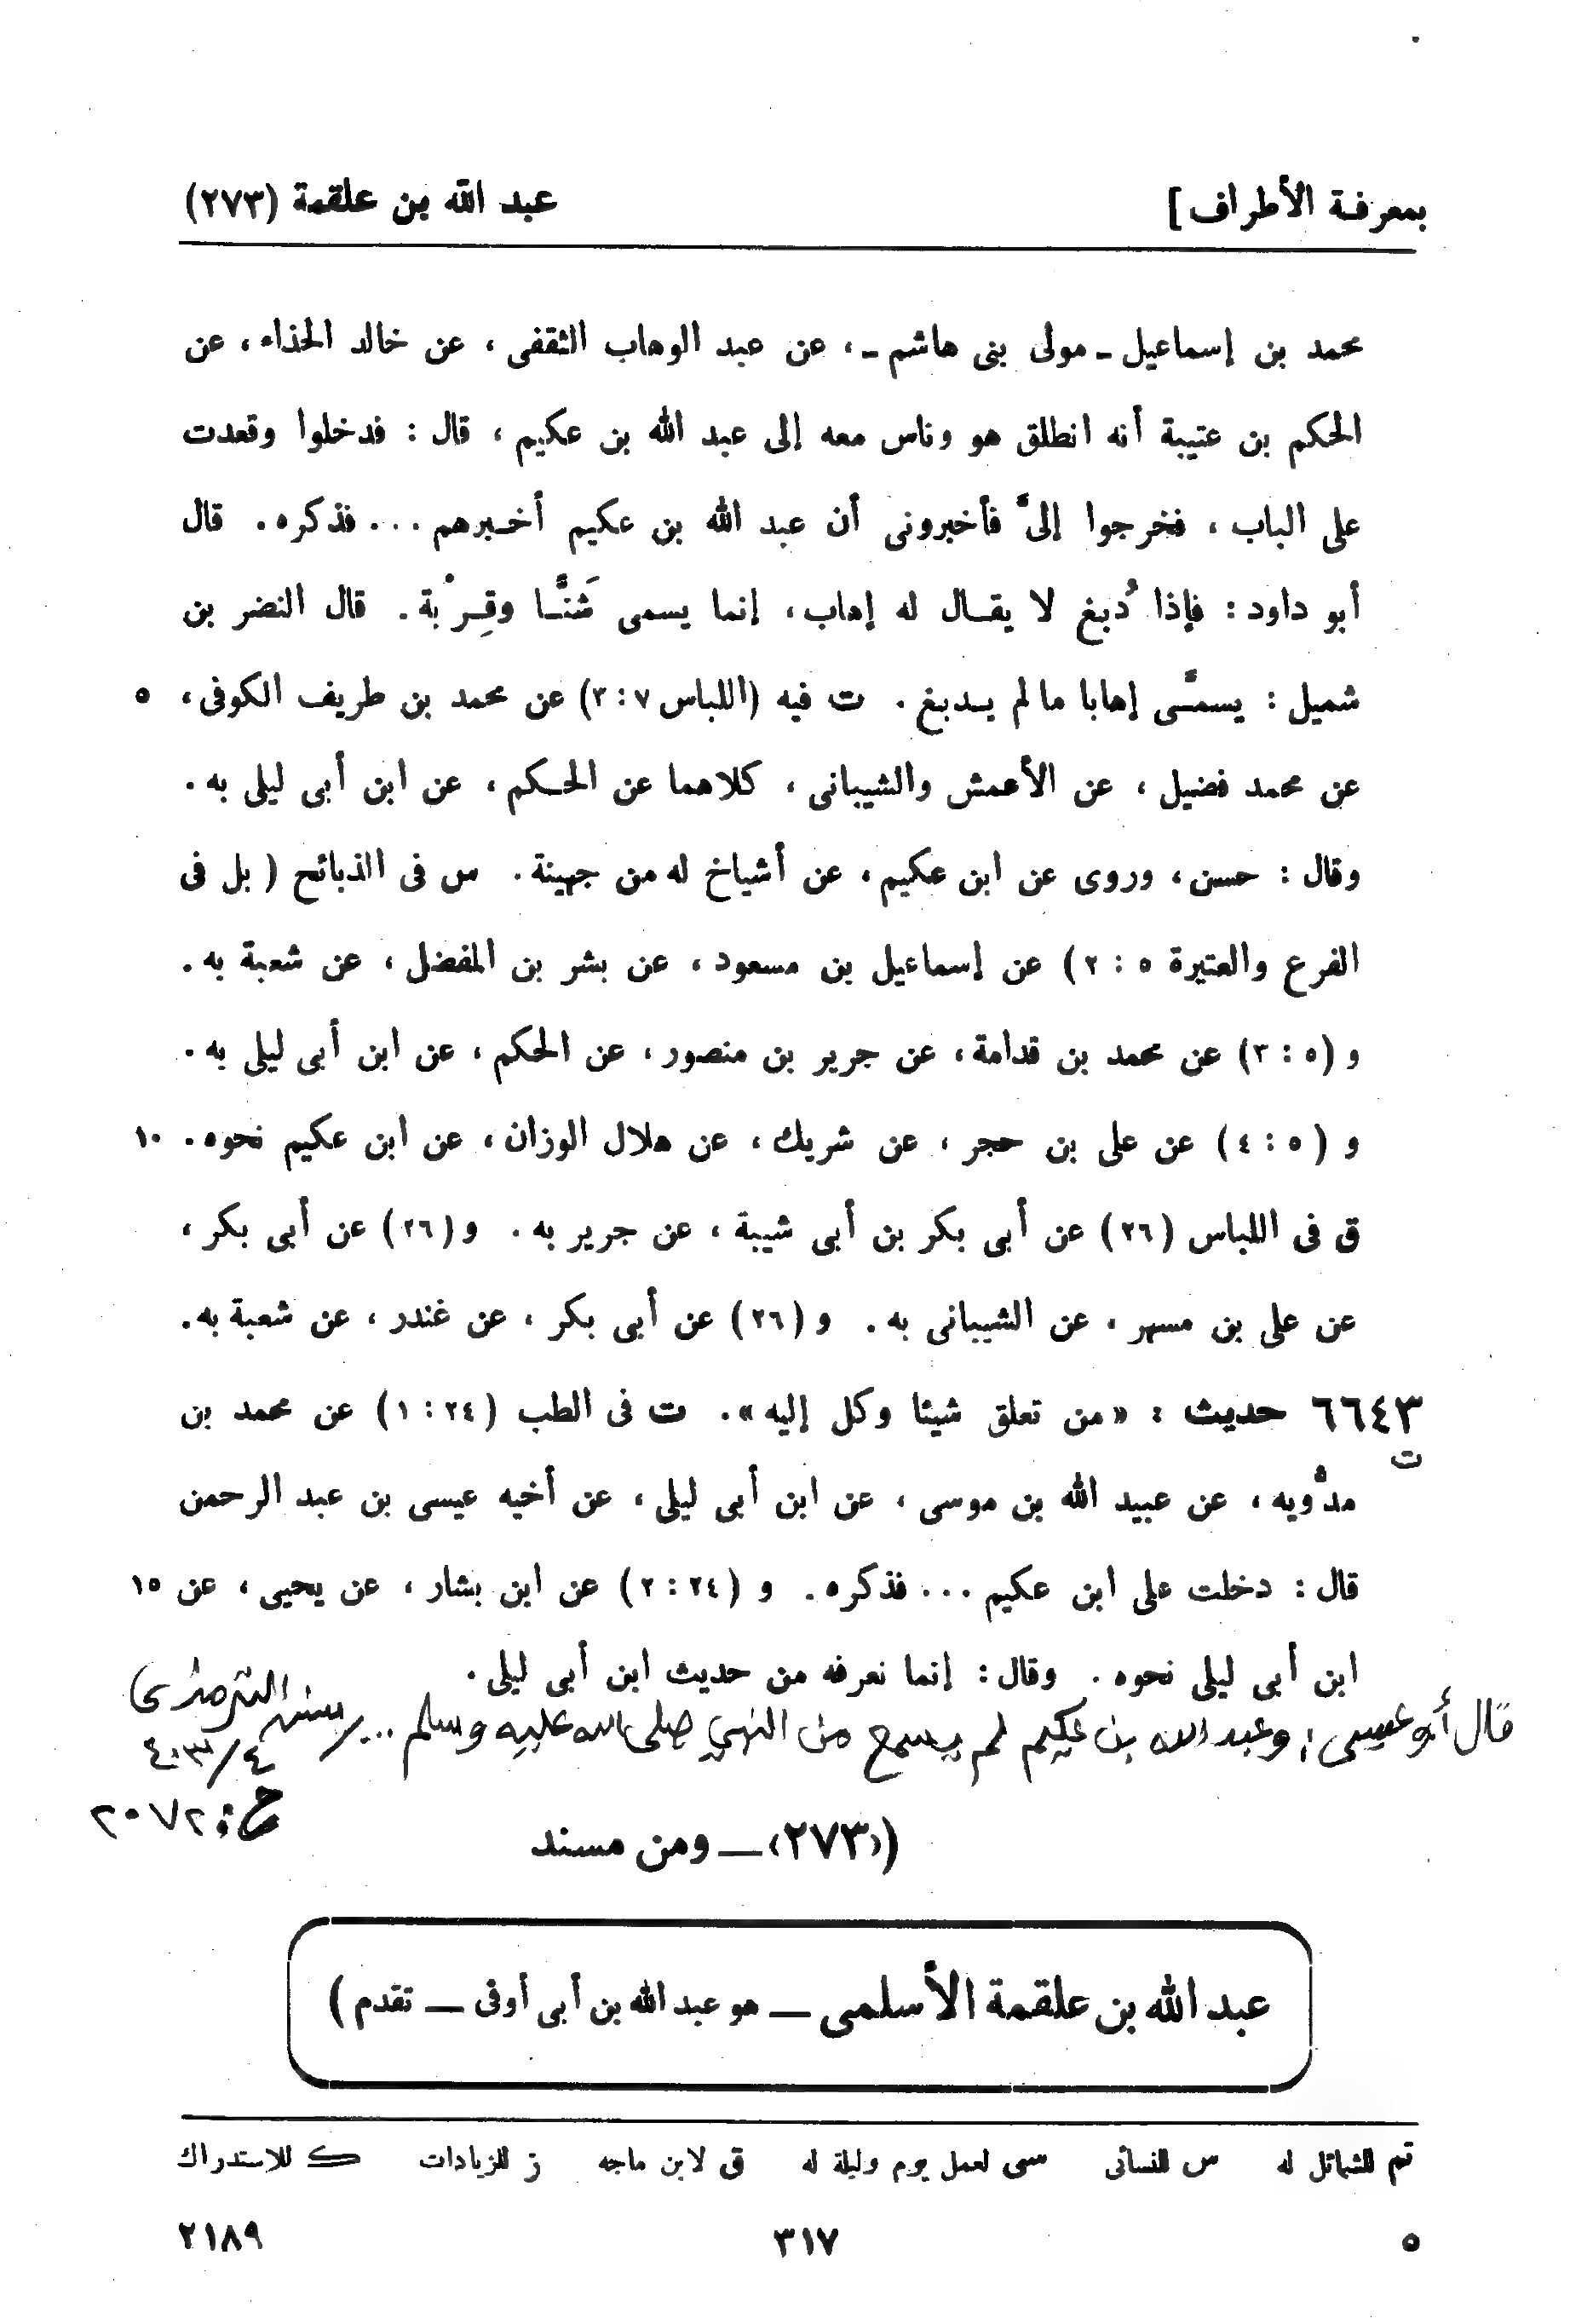 بمعرفة الأطراف] عبد الله بن علقمة (٢٧٣)
محمد بن إسماعيل ـ مولى بنى هاشم ـ ، عن عبد الوهاب الثقفى ، عن خالد الحذاء ، عن
الحكم بن عتيبة أنه انطلق هو وناس معه إلى عبد الله بن عكيم ، قال : فدخلوا وقعدت
على الباب ، فخرجوا إلىَّ فأخبرونى أن عبد الله بن عكيم أخبرهم ... فذكره . قال
أبو داود : فإذا دُبغ لا يقال له إهاب ، إنما يسمى شَنًّا وقِرْبة . قال النضر بن
شميل : يسمَّى إهابا ما لم يدبغ . ت فيه (اللباس ٧ : ٣) عن محمد بن طريف الكوفى ، ٥
عن محمد فضيل ، عن الأعمش والشيبانى ، كلاهما عن الحكم ، عن ابن أبى ليلى به .
وقال : حسن ، وروى عن ابن عكيم ، عن أشياخ له من جهينة . س فى الذبائح ( بل فى
الفرع والعتيرة ٥ : ٢ ) عن إسماعيل بن مسعود ، عن بشر بن المفضل ، عن شعبة به .
و (٥ : ٣) عن محمد بن قدامة ، عن جرير بن منصور ، عن الحكم ، عن ابن أبى ليلى به .
و ( ٥ : ٤ ) عن على بن حجر ، عن شريك ، عن هلال الوزان ، عن ابن عكيم نحوه . ١٠
ق فى اللباس (٢٦) عن أبى بكر بن أبى شيبة ، عن جرير به . و (٢٦) عن أبى بكر ،
عن على بن مسهر ، عن الشيبانى به . و (٢٦) عن أبى بكر ، عن غندر ، عن شعبة به .
٦٦٤٣ حديث : « من تعلق شيئا وكل إليه » . ت فى الطب (٢٤ : ١) عن محمد بن
ت
مدُّويه ، عن عبيد الله بن موسى ، عن ابن أبى ليلى ، عن أخيه عيسى بن عبد الرحمن
قال : دخلت على ابن عكيم ... فذكره . و (٢٤ : ٢) عن ابن بشار ، عن يحيى ، عن ١٥
ابن أبى ليلى نحوه . وقال : إنما نعرفه من حديث ابن أبى ليلى .
قال أبو عيسى : وعبد الله بن عكيم لم يسمع من النبي صلى الله عليه وسلم .. / سنن الترمذي
٤/٤٠٣
ح : ٢٠٧٢
(«٢٧٣» — ومن مسند
عبد الله بن علقمة الأسلمى — هو عبد الله بن أبى أوفى — تقدم )
تم للشمائل له س للنسائى سى لعمل يوم وليلة له ق لابن ماجه ز للزيادات ك للاستدراك
٥ ٣١٧ ٢١٨٩